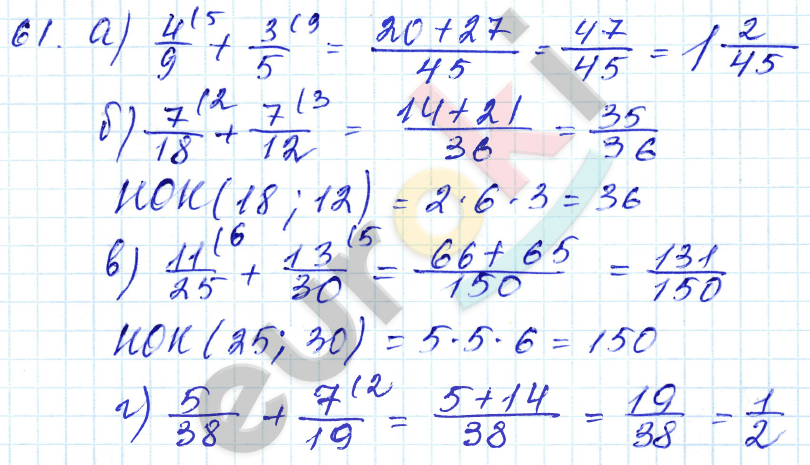 61. а) 4/9 (5 + 3/5 (9 = 20+27/45 = 47/45 = 1 2/45
б) 7/18 (2 + 7/12 (3 = 14+21/36 = 35/36
НОК(18; 12) = 2·6·3 = 36
в) 11/25 (6 + 13/30 (5 = 66+65/150 = 131/150
НОК(25; 30) = 5·5·6 = 150
г) 5/38 + 7/19 (2 = 5+14/38 = 19/38 = 1/2
euroki